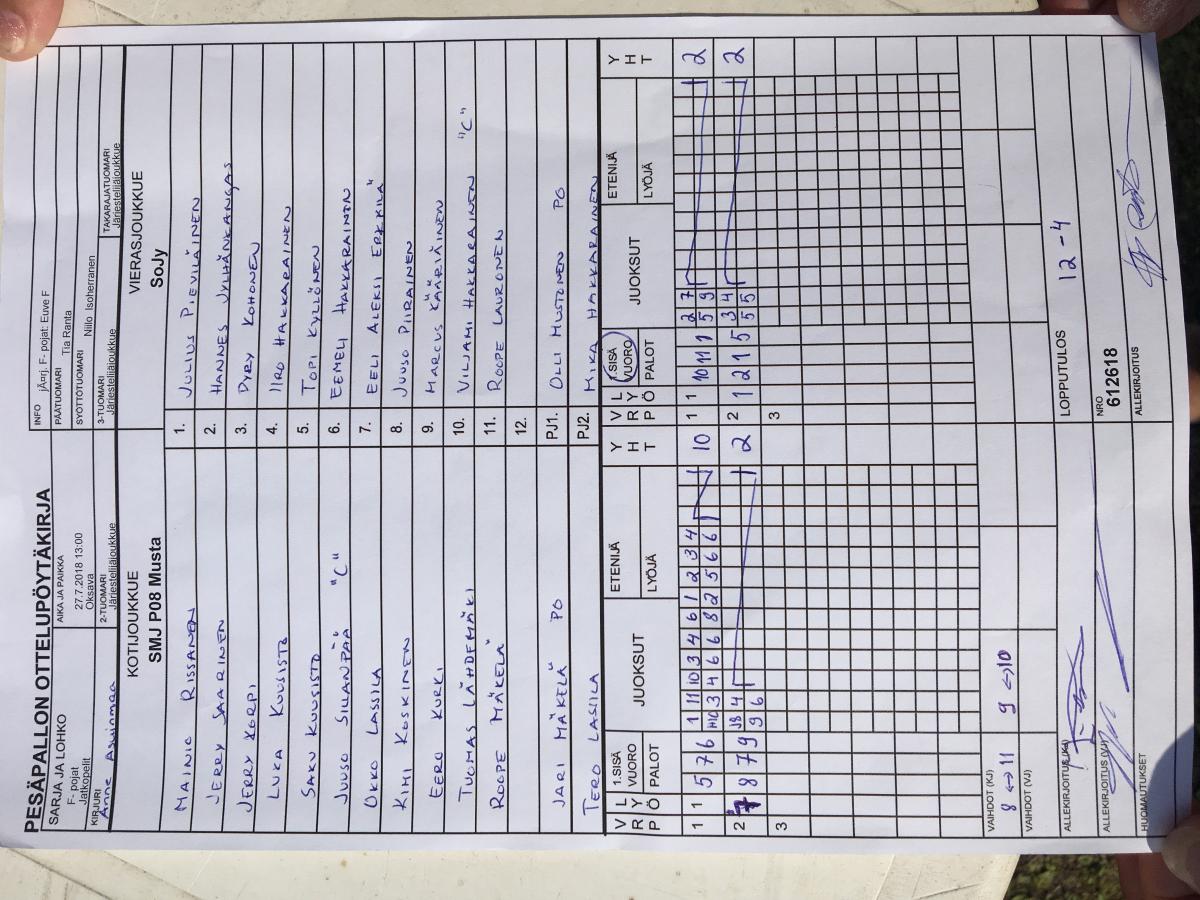 PESÄPALLON OTTELUPÖYTÄKIRJA
SARJA JA LOHKO
F- pojat
Jatkopelit
AIKA JA PAIKKA
27.7.2018 13:00
Oksava
INFO jÄ¤rj. F- pojat: Euve F
PÄÄTUOMARI Tia Ranta
SYÖTTÖTUOMARI Niilo Isoherranen
KIRJURI
Anne
2-TUOMARI
Järjestelijäjoukkue
3-TUOMARI
Järjestelijäjoukkue
TAKARAJATUOMARI
Järjestelijäjoukkue
KOTIJOUKKUE
SMJ P08 Musta
VIERASJOUKKUE
SoJy
MAINIO RISSANEN 1. JULIUS PIEVILÄINEN
JERRY SAARINEN 2. HANNES JYLHÄNKANGAS
JERRY KORPI 3. PYRY KOHONEN
LUKA KUUSISTO 4. IIRO HAKKARAINEN
SAKU KUUSISTO 5. TOPI KYLLÖNEN
JUUSO SILLANPÄÄ "C" 6. EEMELI HAKKARAINEN
OKKO LASSILA 7. EELI ALEKSI ERKKILÄ
KIMI KOSKINEN 8. JUUSO PIIRAINEN
EERO KURKI 9. MARCUS KÄÄRIÄINEN
TUOMAS LÄHDEMÄKI 10. VILJAMI HAKKARAINEN "C"
ROOPE MÄKELÄ 11. ROOPE LAURONEN
12.
JARI MÄKELÄ PO PJ1. OLLI MUSTONEN PO
TERO LASSILA PJ2. MIKA HAKKARAINEN
V L 1.SISÄ JUOKSUT ETENIJÄ Y V L 1.SISÄ JUOKSUT ETENIJÄ Y
R Y VUORO H R Y VUORO H
P Ö PALOT LYÖJÄ T P Ö PALOT LYÖJÄ T
1 1 5 7 6 1 11 10 3 4 6 1 2 3 4 10 1 1 10 11 1 2 7 2
3 4 6 6 8 2 5 6 6 5 9
2 7 8 7 9 4 2 2 1 2 1 5 3 4 2
9 6 5 5
3 3
VAIHDOT (KJ) 8 <-> 11 9 <-> 10
VAIHDOT (VJ)
ALLEKIRJOITUS (KJ)
LOPPUTULOS 12 - 4
ALLEKIRJOITUS (VJ)
NRO
612618
HUOMAUTUKSET
ALLEKIRJOITUS